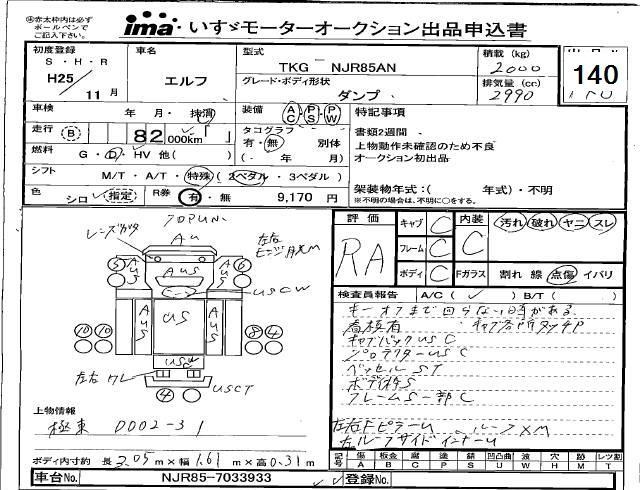 ㊟赤太枠内は必ず
ボールペンで
ご記入下さい。
ima いすゞモーターオークション出品申込書
初度登録
S・H・R
H25/11月
車名
エルフ
型式
TKG - NJR85AN
グレード・ボディ形状
ダンプ
積載(kg)
2000
排気量(cc)
2990
140
車検 年・月・抹消
装備 AC・PS・PW
特記事項
書類2週間
上物動作未確認のため不良
オークション初出品
走行 B 82,000km「 」
タコグラフ
有・無 別体
(- 年 月)
燃料 G・D・HV 他( )
シフト M/T・A/T・特殊(2ペダル・3ペダル)
架装物年式:( 年式)・不明
※不明の場合は、不明に○をする。
色 シロ 指定 R券 有・無 9,170円
TOPUN
AU
左右
AUS
5
6
USCW
US
10 10
8 4
左右 ワレ
USCT
4
上物情報
極東 DD02-31
ボディ内寸約 長3.05m×幅1.61m×高0.31m
車台No. NJR85-7033933
評価
RA
キャブ C
フレーム C
ボディ C
内装 C
汚れ 破れ ヤニ スレ
Fガラス 割れ 線 点傷 イバリ
検査員報告 A/C( ✓ ) B/T( )
キーオフまで回らない時がある
キャブバックUSC
プロテクターUSC
ベッセルST
ボディ枠S
フレームS一部C
左右FピラーU
左ルーフサイドインナーU
記号 傷 板金 腐 塗 錆 凹凸曲 波 穴 跡 レツ割
A B C P S U W H M T
登録No.